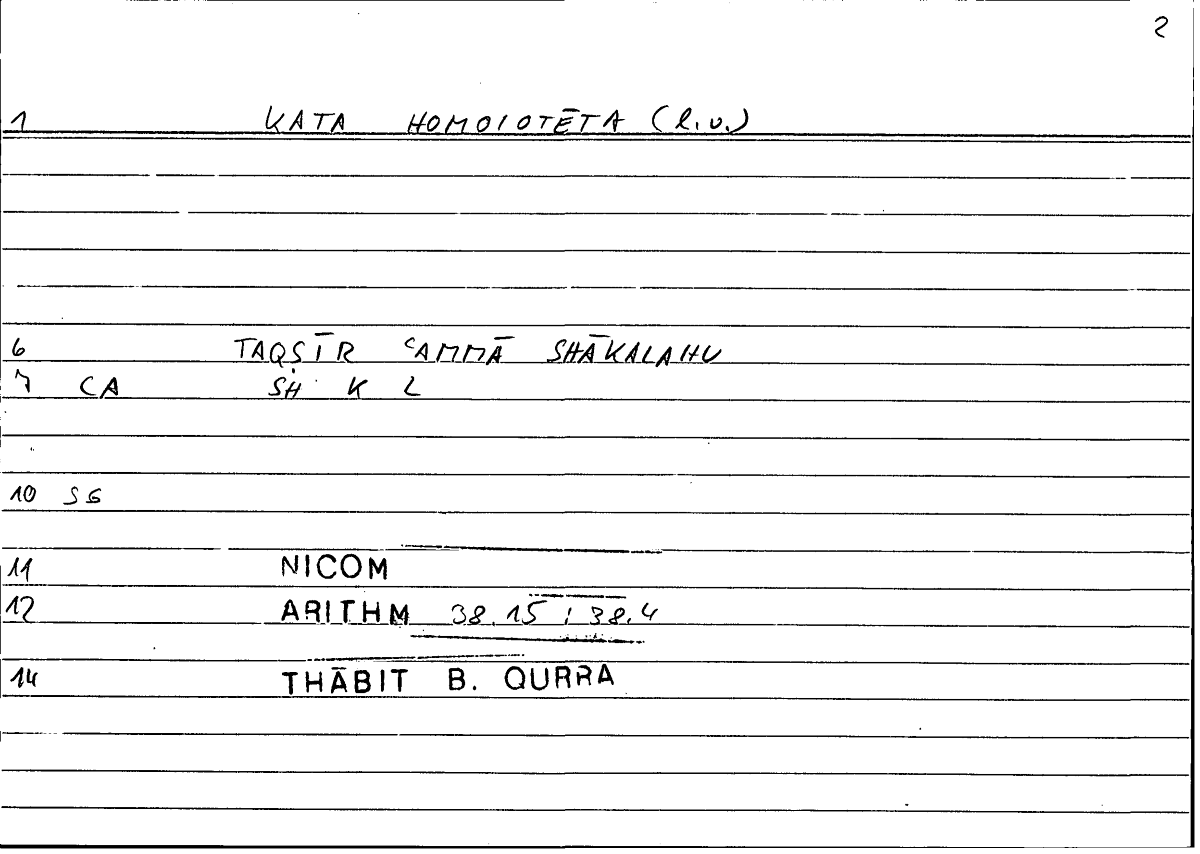 2
1 KATA HOMOIOTĒTA (l.v.)
6 TAQṢĪR ʿAMMĀ SHĀKALAHU
7 CA SH K L
10 SG
11 NICOM
12 ARITHM 38.15 ; 38.4
14 THĀBIT B. QURRA